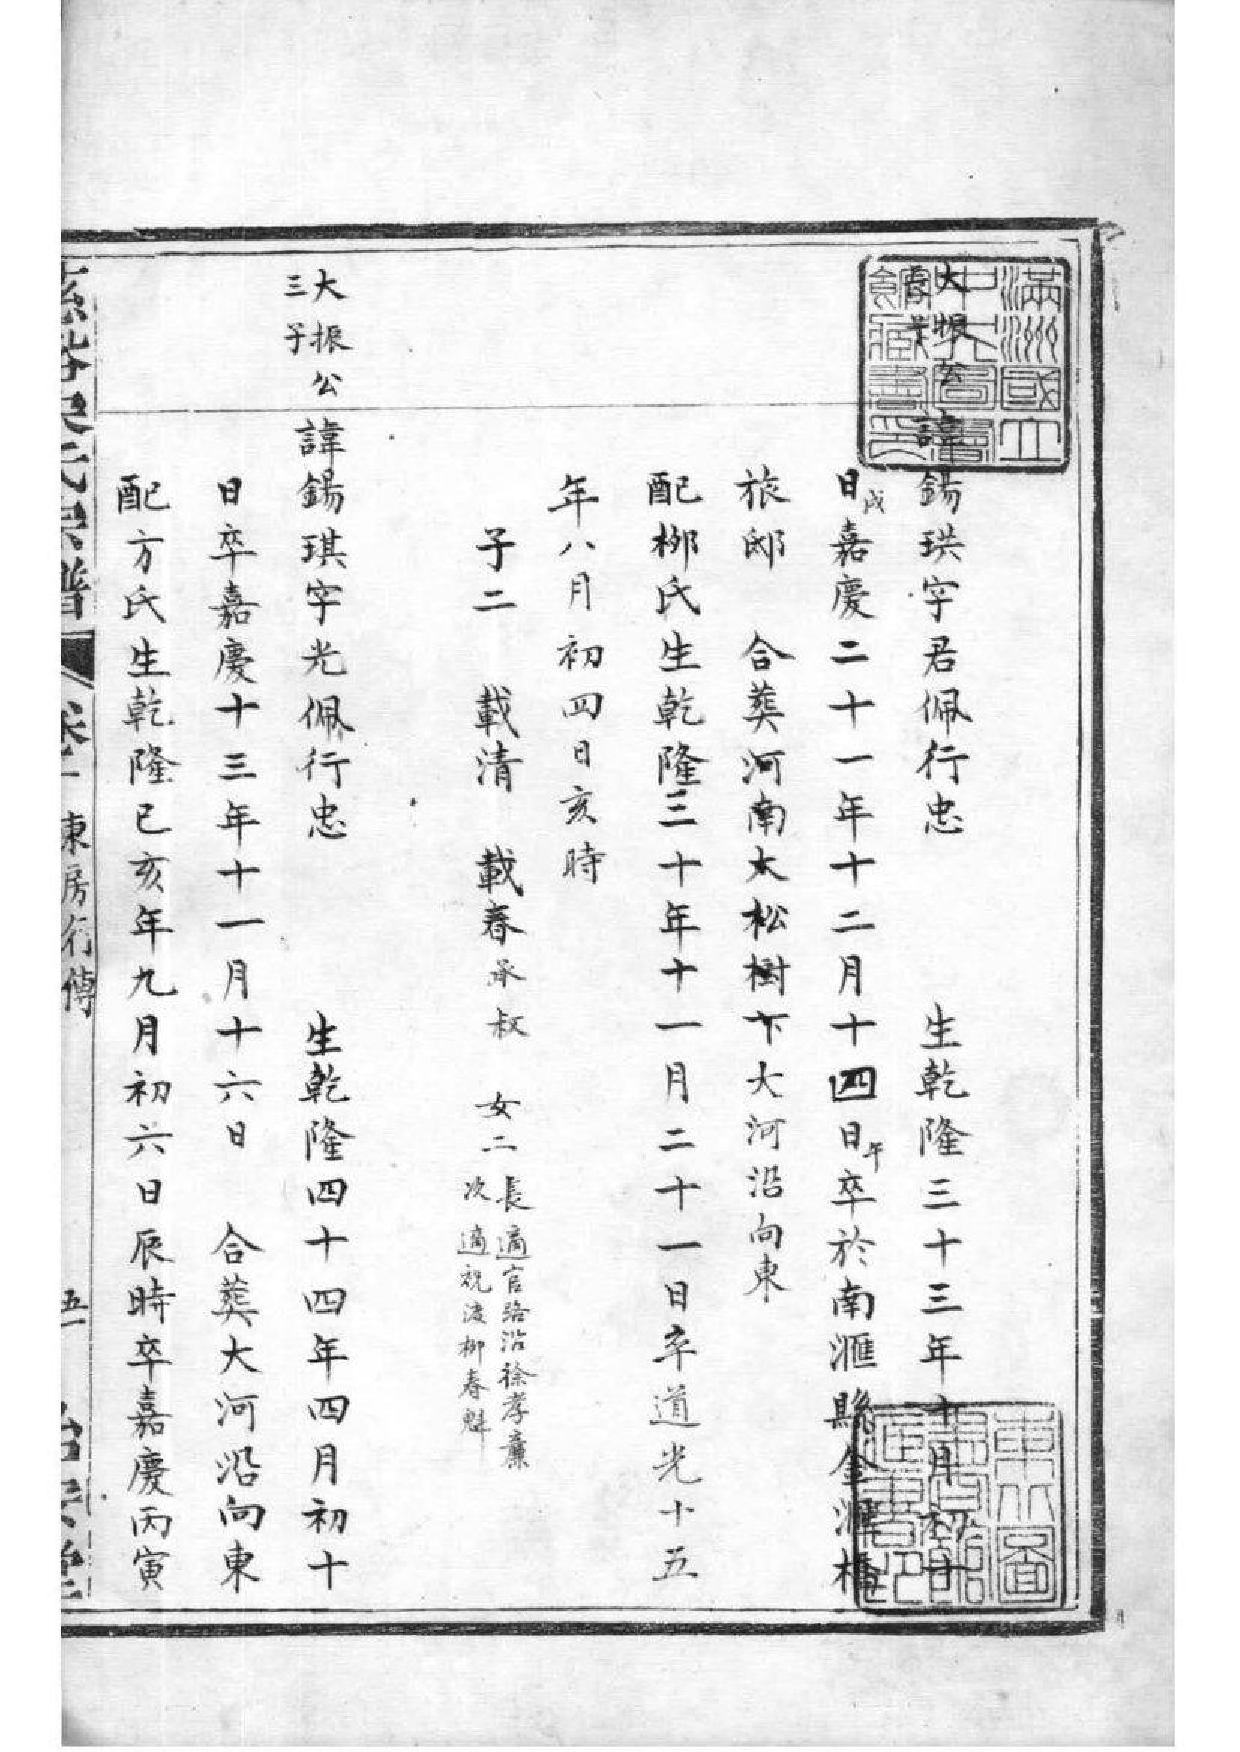 滿洲國立
中央圖書
館籌備處
藏書之印
大振公
諱錫珙字君佩行忠 生乾隆三十三年十月初十
日戌嘉慶二十一年十二月十四日午卒於南滙縣金滙橋
旅邸 合葬河南大松樹下大河沿向東
配柳氏生乾隆三十年十一月二十一日卒道光十五
年八月初四日亥時
子二 載清 載春承叔 女二長適官路沿徐孝廉
次適祝渡柳春魁
大振公
三子
諱錫琪字光佩行忠 生乾隆四十四年四月初十
日卒嘉慶十三年十一月十六日 合葬大河沿向東
配方氏生乾隆己亥年九月初六日辰時卒嘉慶丙寅
氏宗譜 卷一 東房行傳 五
東北圖
書館
藏書印